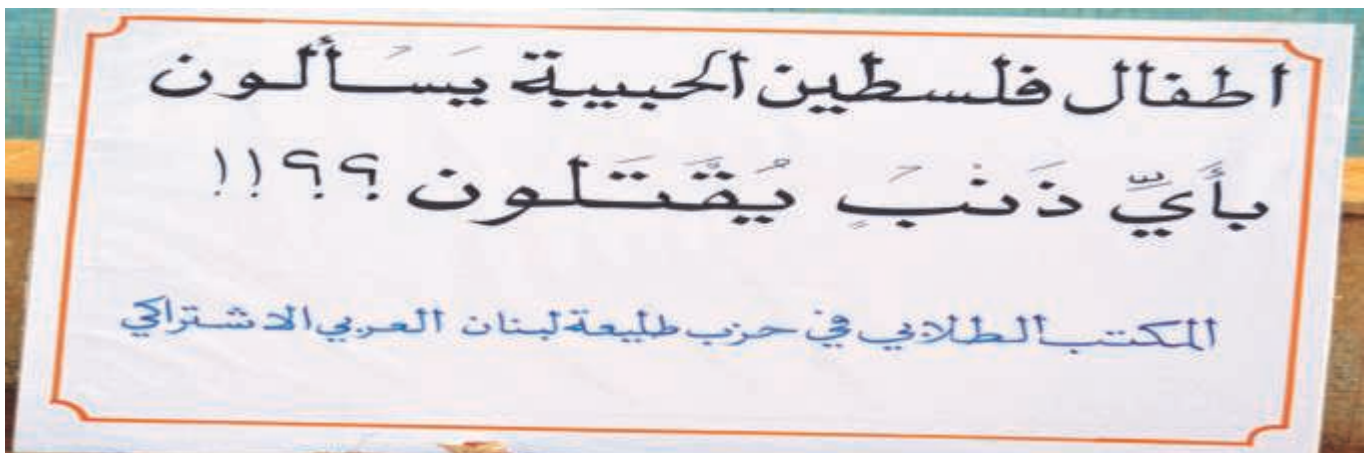 اطفال فلسطين الحبيبة يَسألون
بأَيِّ ذَنْبٍ يُقتَلون ؟؟!!
المكتب الطلابي في حزب طليعة لبنان العربي الاشتراكي